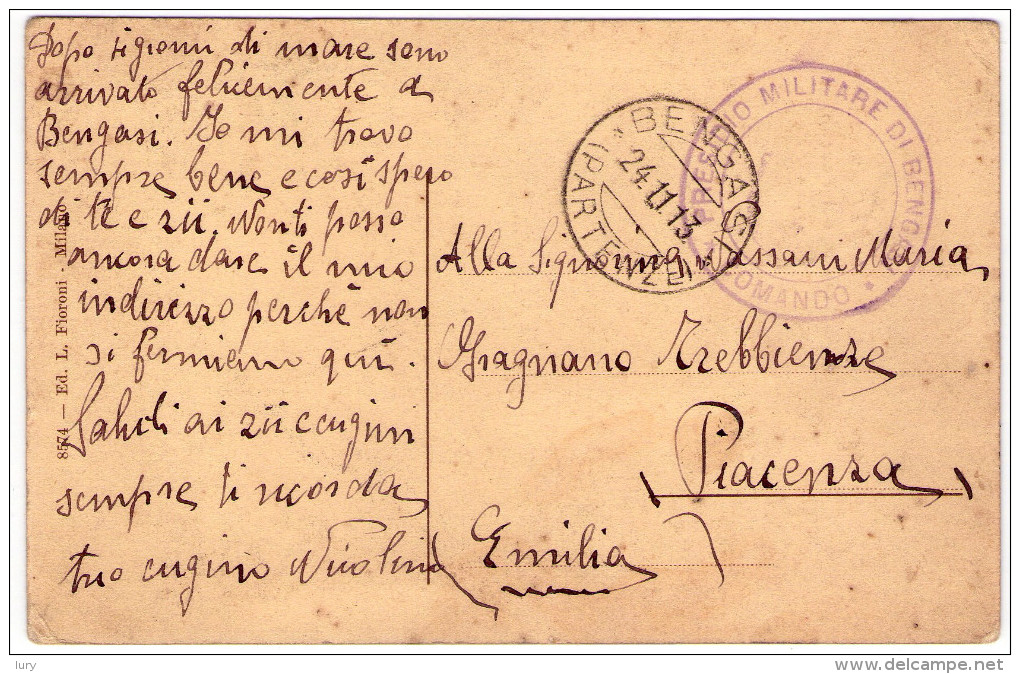 Dopo giorni di mare sono
arrivato felicemente a
Bengasi. Io mi trovo
sempre bene e così spero
di te e zii. Non ti posso
ancora dare il mio
indirizzo perchè non
si fermiamo qui.
Saluti ai zii e cugini
sempre ti ricorda
tuo cugino Nicolino
8574 — Ed. L. Fioroni - Milano
BENGASI
24.11.13
(PARTENZE)
PRESIDIO MILITARE DI BENGASI
COMANDO
Alla Signorina Maria
Gragnano Trebbiense
Piacenza
(Emilia)
lury
delcampe.net